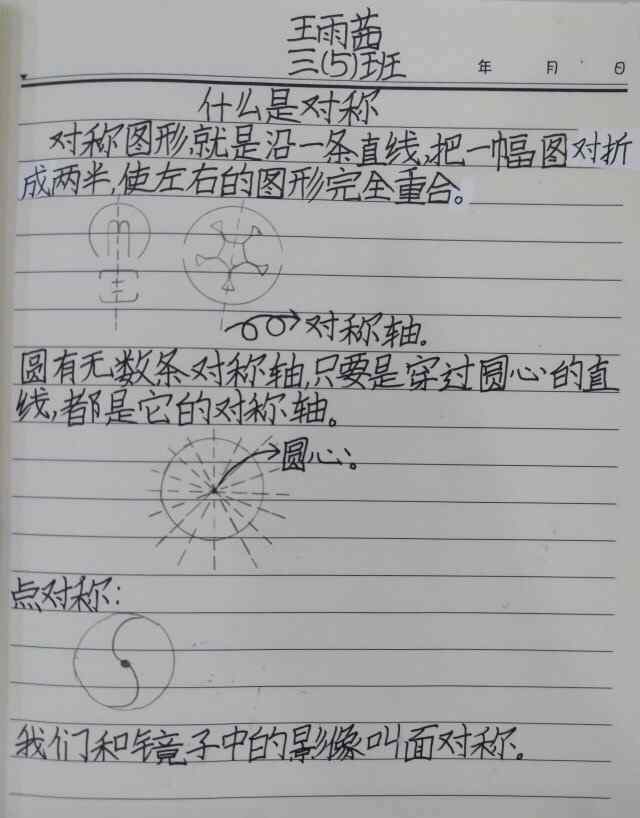 王雨茜
三(5)班
年 月 日
什么是对称
对称图形,就是沿一条直线,把一幅图对折
成两半,使左右的图形完全重合。
对称轴.
圆有无数条对称轴,只要是穿过圆心的直
线,都是它的对称轴。
圆心。
点对称:
我们和镜子中的影像叫面对称.